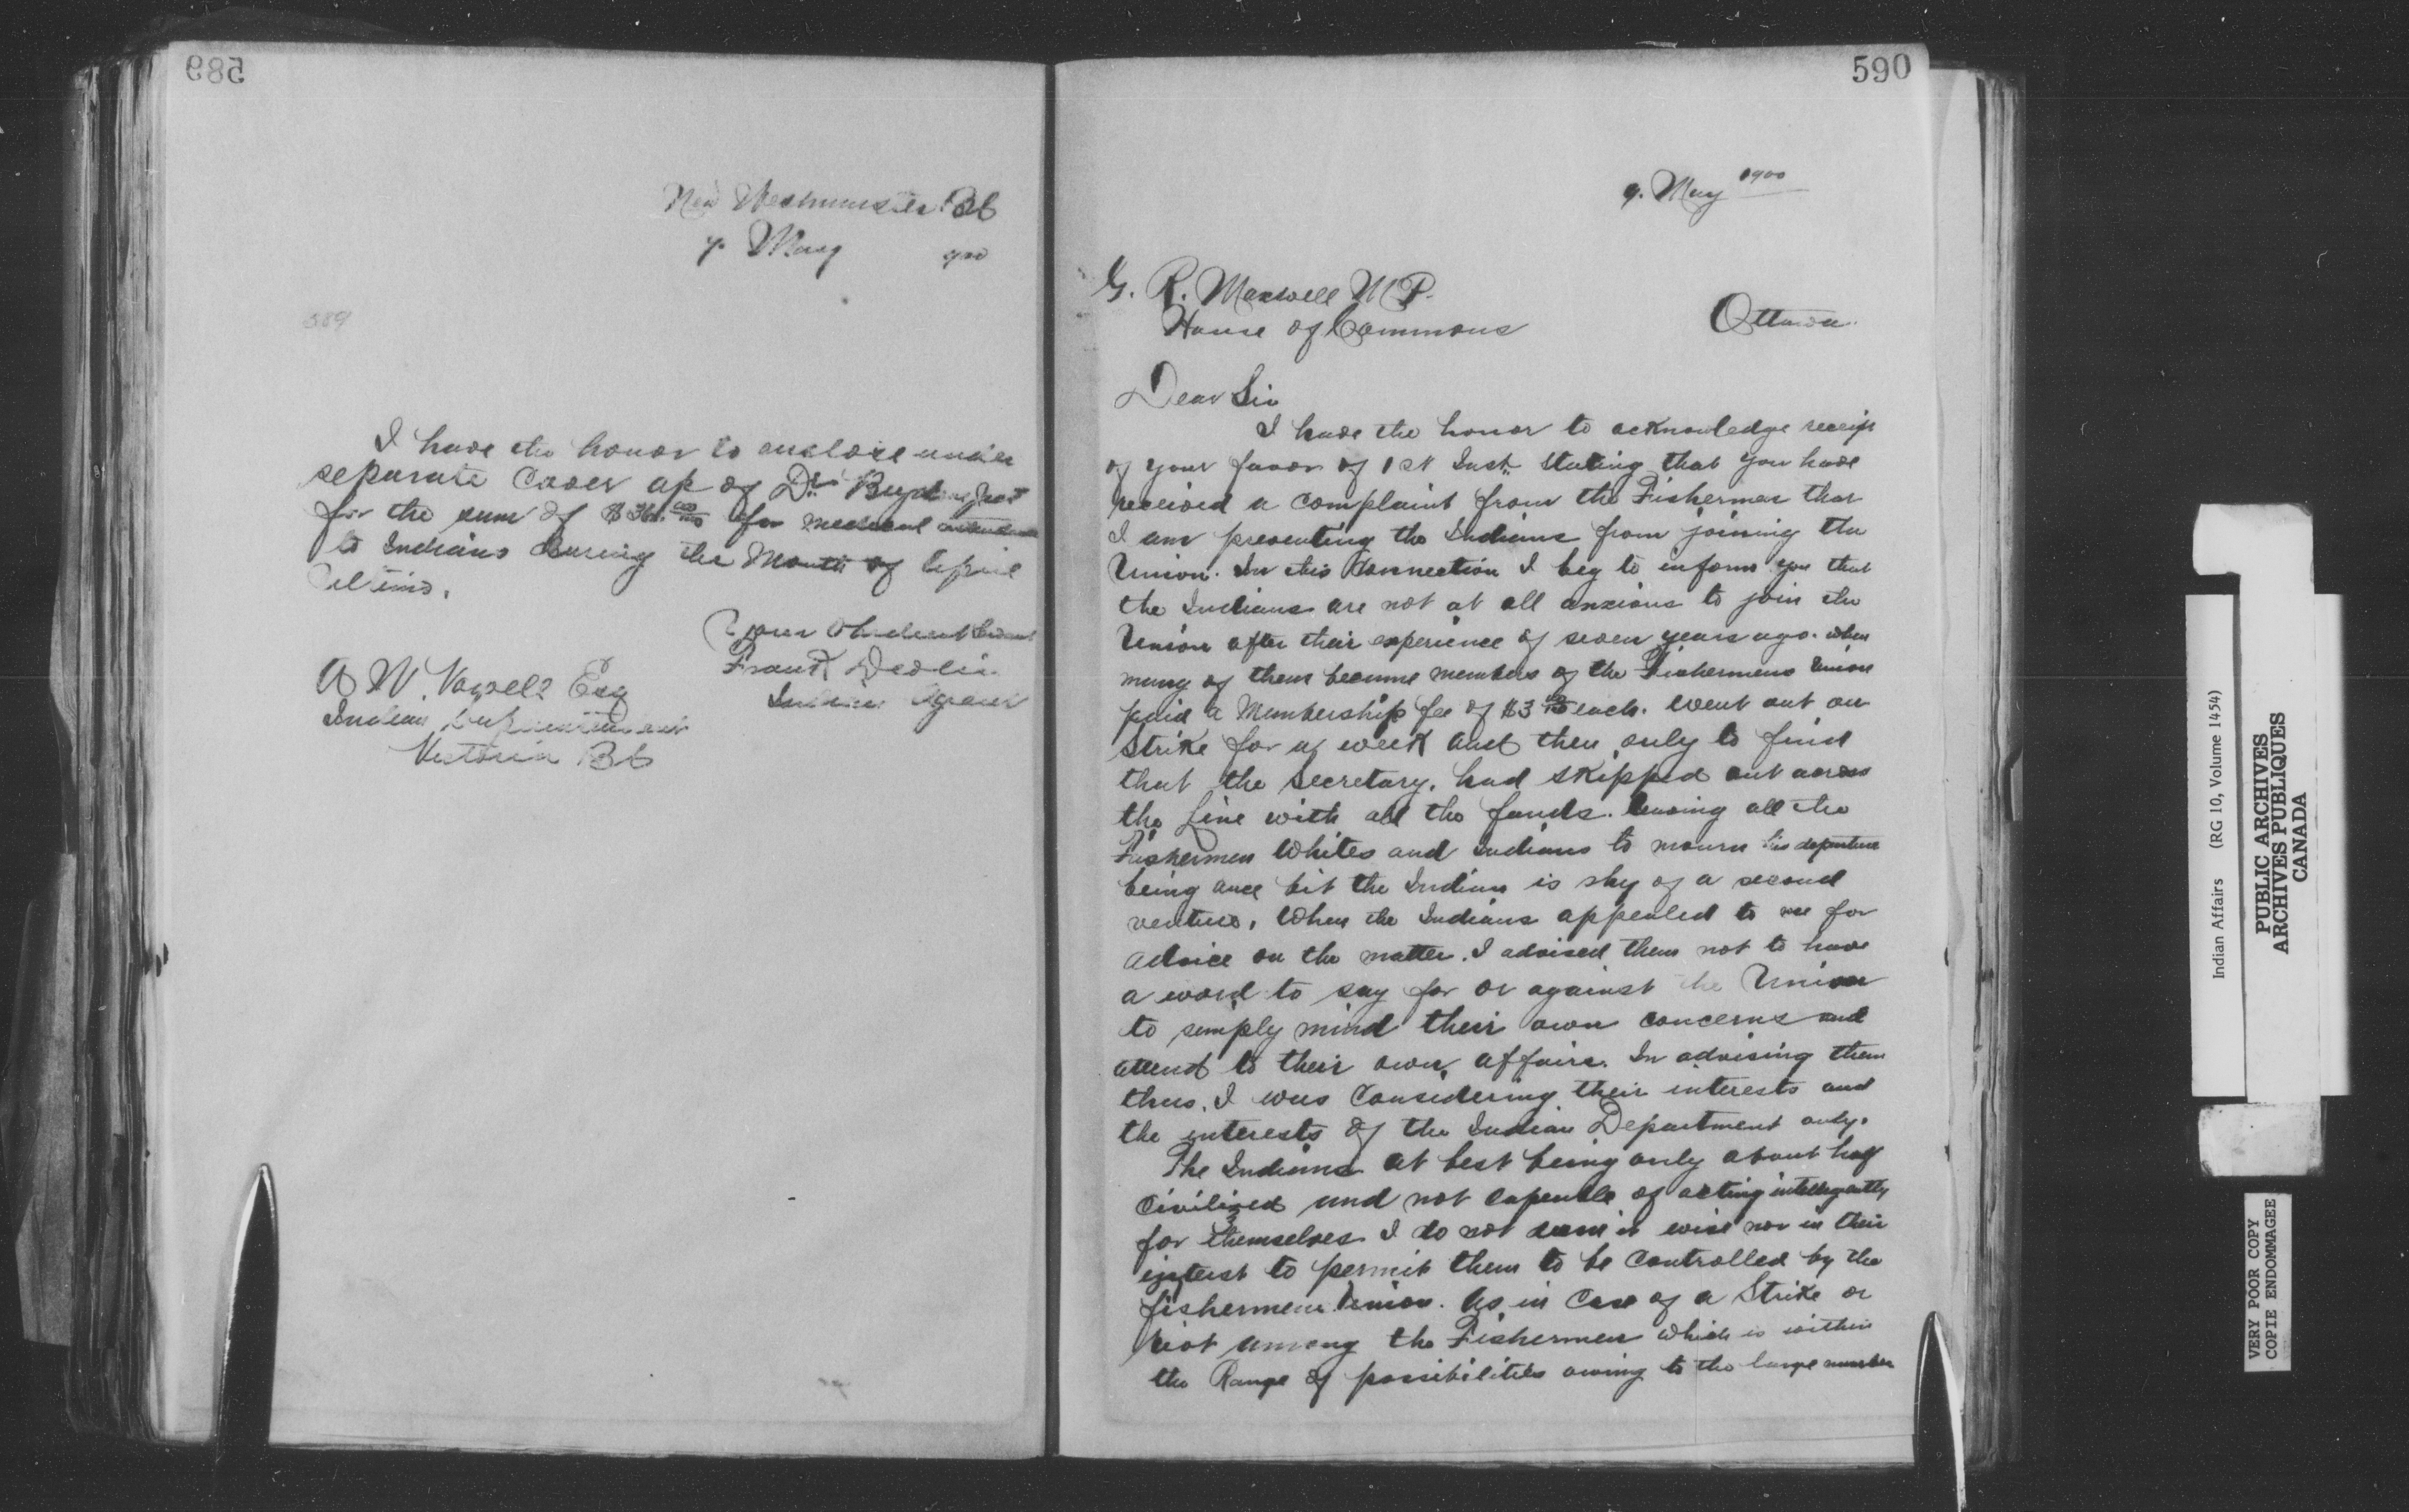 589
New Westminster BC
9. May 900
589
I have the honor to enclose under
separate Cover a/c of Drs Boyd
for the sum of $ for medical attendance
to Indians during the Month of April
ultimo.
Your Obedient Servant
Frank Devlin
Indian Agent
A W. Vowell Esq
Indian Superintendent
Victoria BC
590
9. May 1900
G. R. Maxwell M P.
House of Commons Ottawa.
Dear Sir
I have the honor to acknowledge receipt
of your favor of 1st Inst. Stating that you have
received a complaint from the Fishermen that
I am preventing the Indians from joining the
Union. In this Connection I beg to inform you that
the Indians are not at all anxious to join the
Union after their experience of seven years ago. when
many of them became members of the Fishermens Union
paid a Membership fee of $3 00/100 each. Went out on
Strike for a week and then only to find
that the Secretary. had skipped out across
the Line with all the funds. leaving all the
Fishermen Whites and Indians to mourn his departure
being once bit the Indian is shy of a second
venture. When the Indians appealed to me for
advice on the matter. I advised them not to have
a word to say for or against the Union
to simply mind their own concerns and
attend to their own affairs. In advising them
thus. I was Considering their interests and
the interests of the Indian Department only.
The Indians at best being only about half
Civilized and not capable of acting intelligently
for themselves I do not deem it wise nor in their
interest to permit them to be Controlled by the
fishermens Union. As in Case of a Strike or
riot among the Fishermen which is within
the Range of possibilities owing to the large number
Indian Affairs (RG 10, Volume 1454)
PUBLIC ARCHIVES
ARCHIVES PUBLIQUES
CANADA
VERY POOR COPY
COPIE ENDOMMAGEE